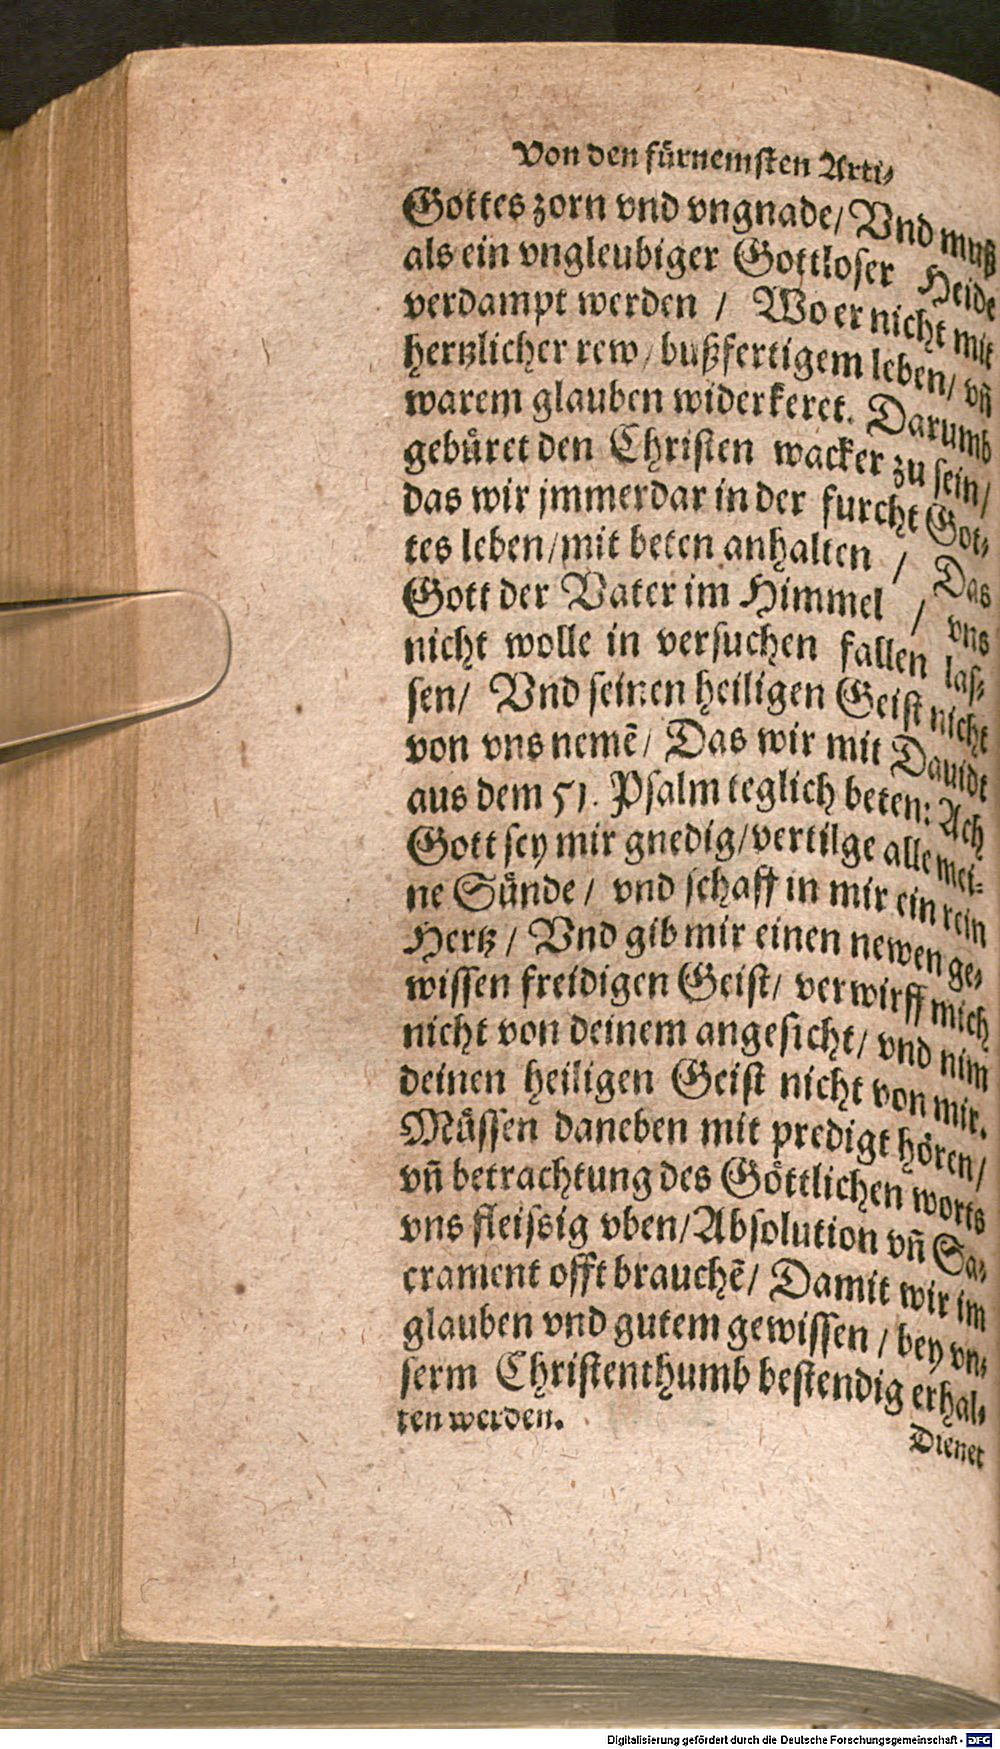 Von den fürnemsten Arti⸗
Gottes zorn vnd vngnade/ Vnd muß
als ein vngleubiger Gottloser Heide
verdampt werden / Wo er nicht mit
hertzlicher rew/ bußfertigem leben/ vñ
warem glauben widerkeret. Darumb
gebüret den Christen wacker zu sein/
das wir jmmerdar in der furcht Got⸗
tes leben/ mit beten anhalten / Das
Gott der Vater im Himmel / vns
nicht wolle in versuchen fallen las⸗
sen/ Vnd seinen heiligen Geist nicht
von vns nemẽ/ Das wir mit Dauidt
aus dem 51. Psalm teglich beten: Ach
Gott sey mir gnedig/ vertilge alle mei⸗
ne Sünde/ vnd schaff in mir ein rein
Hertz / Vnd gib mir einen newen ge⸗
wissen freidigen Geist/ verwirff mich
nicht von deinem angesicht/ vnd nim
deinen heiligen Geist nicht von mir.
Müssen daneben mit predigt hören/
vñ betrachtung des Göttlichen worts
vns fleissig vben/ Absolution vñ Sa⸗
crament offt brauchẽ/ Damit wir im
glauben vnd gutem gewissen / bey vn⸗
serm Christenthumb bestendig erhal⸗
ten werden.
Dienet
Digitalisierung gefördert durch die Deutsche Forschungsgemeinschaft - DFG